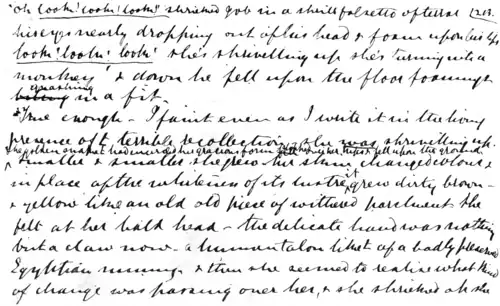 "oh look! look! look!" shrieked Job in a shrill falsetto of terror
his eyes nearly dropping out of his head & foam upon his lips
look! look! look! she's shrivelling up she's turning into a
monkey' & down he fell upon the floor foaming &
gnashing
biting in a fit
True enough - I faint even as I write it in the living
presence of terrible recollection, she was shrivelling up
the golden snake that had encircled her gracious form fell upon the ground
smaller & smaller she grew her skin changed colour &
in place of the whiteness of its lustre it grew dirty brown -
& yellow like an old old piece of withered parchment she
felt at her bald head - the delicate hand was nothing
but a claw now - a human talon like that of a badly preserved
Egyptian mummy & then she seemed to realize what kind
of change was passing over her, & she shrieked ah she